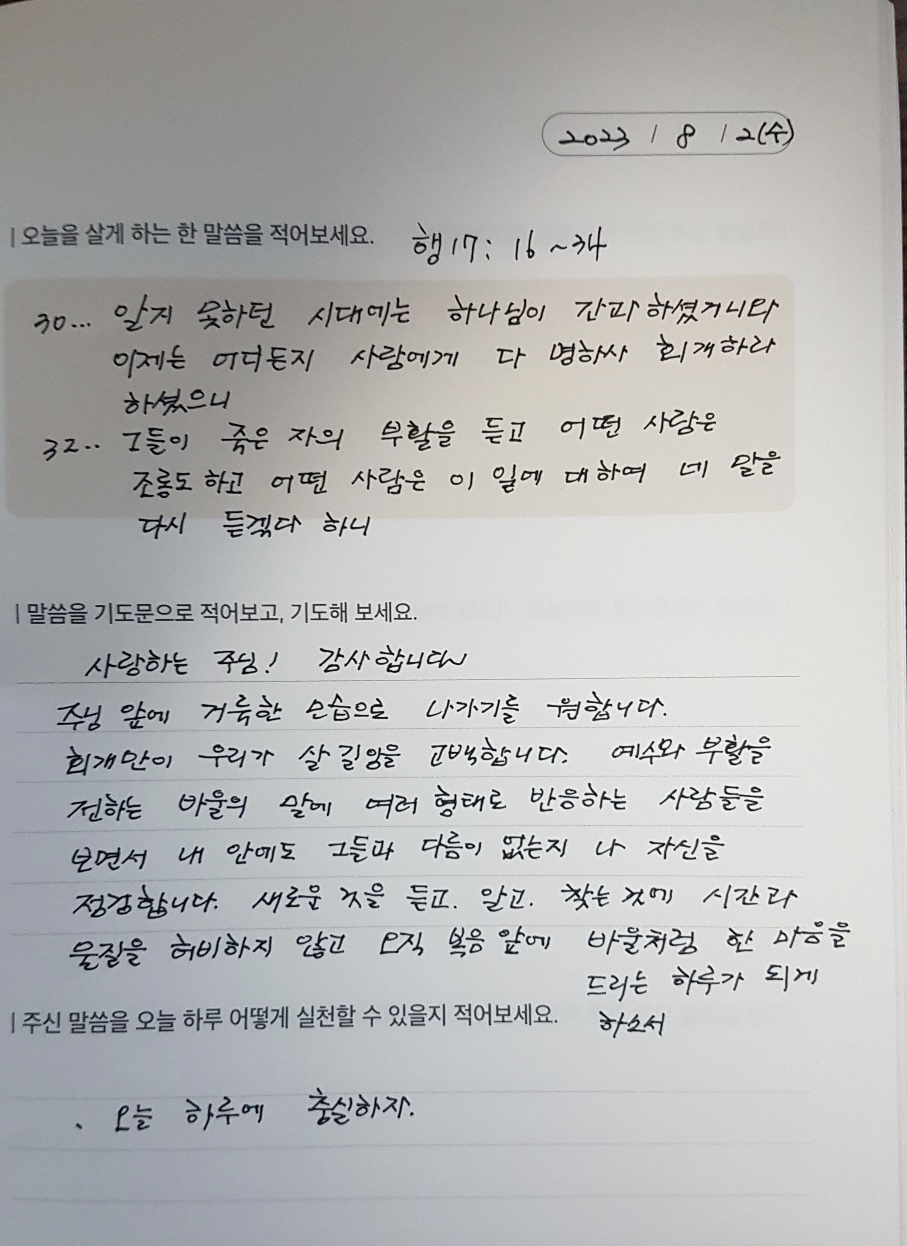 2023 / 8 / 2(수)
| 오늘을 살게 하는 한 말씀을 적어보세요. 행17: 16~34
30... 알지 못하던 시대에는 하나님이 간과하셨거니와
이제는 어디든지 사람에게 다 명하사 회개하라
하셨으니
32.. 그들이 죽은 자의 부활을 듣고 어떤 사람은
조롱도 하고 어떤 사람은 이 일에 대하여 네 말을
다시 듣겠다 하니
| 말씀을 기도문으로 적어보고, 기도해 보세요.
사랑하는 주님! 감사합니다
주님 앞에 거룩한 모습으로 나가기를 원합니다.
회개만이 우리가 살 길임을 고백합니다. 예수와 부활을
전하는 바울의 말에 여러 형태로 반응하는 사람들을
보면서 내 안에도 그들과 다름이 없는지 나 자신을
점검합니다. 새로운 것을 듣고. 알고. 찾는 것에 시간과
물질을 허비하지 않고 오직 복음 앞에 바울처럼 한 마음을
드리는 하루가 되게
하소서
| 주신 말씀을 오늘 하루 어떻게 실천할 수 있을지 적어보세요.
. 오늘 하루에 충실하자.